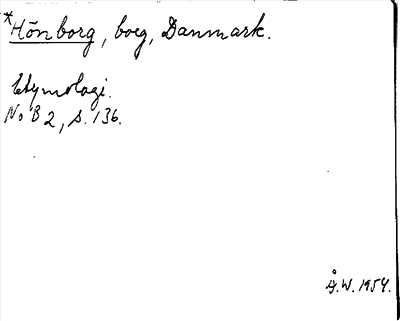 *Hönborg, borg, Danmark.
Etymologi.
NoB 2, s. 136.
Å.W. 1954.